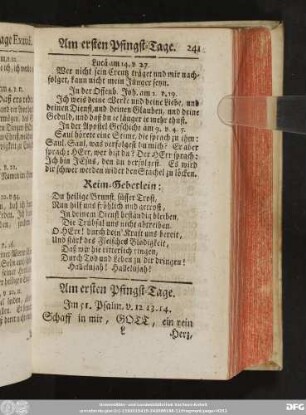 Am ersten Pfingst-Tage. 241
Lucä am 14. v. 27.
Wer nicht sein Creutz träget und mir nach-
folget, kann nicht mein Jünger seyn.
In der Offenb. Joh. am 2. v. 19.
Ich weis deine Werke und deine Liebe, und
deinen Dienst, und deinen Glauben, und deine
Gedult, und daß du je länger je mehr thust.
In der Apostel Geschicht am 9. v. 4. 5.
Saul hörete eine Stime, die sprach zu ihm:
Saul, Saul, was verfolgest du mich? Er aber
sprach: HErr, wer bist du? Der HErr sprach:
Ich bin JEsus, den du verfolgest. Es wird
dir schwer werden wider den Stachel zu löcken.
Reim-Gebetlein:
Du heilige Brunst, süsser Trost,
Nun hilf uns frölich und getrost,
In deinem Dienst beständig bleiben,
Die Trübsal uns nicht abtreiben.
O HErr! durch dein' Kraft uns bereit,
Und stärk des Fleisches Blödigkeit,
Daß wir hie ritterlich ringen,
Durch Tod und Leben zu dir dringen!
Hallelujah! Hallelujah!
Am ersten Pfingst-Tage.
Im 51. Psalm. v. 12. 13. 14.
Schaff in mir, GOTT, ein rein
Herz,